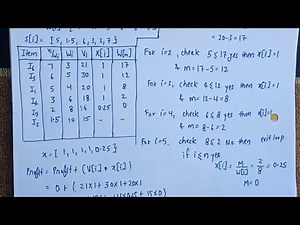 S[i] = {5, 1.5, 6, 3, 2, 7}
= 20-3 = 17
Item Vi/Wi Wi Vi X[i] W[m]
I6 7 3 21 1 17
I3 6 5 30 1 12
I1 5 4 20 1 8
I4 3 6 18 1 2
I5 2 8 16 0.25 0
I2 1.5 10 15 - -
For i=2, check 5≤17 yes then x[i]=1
& m=17-5=12
For i=3, check 4≤12 yes then x[i]=1
& m=12-4=8
For i=4, check 6≤8 yes then x[i]=1
& m=8-6=2
For i=5, check 8≤2 No then exit loop
if i≤n yes
x[i] = M/W[i] = 2/8 = 0.25
M=0
x = {1, 1, 1, 1, 0.25}
Profit = Profit + (V[i] * x[i])